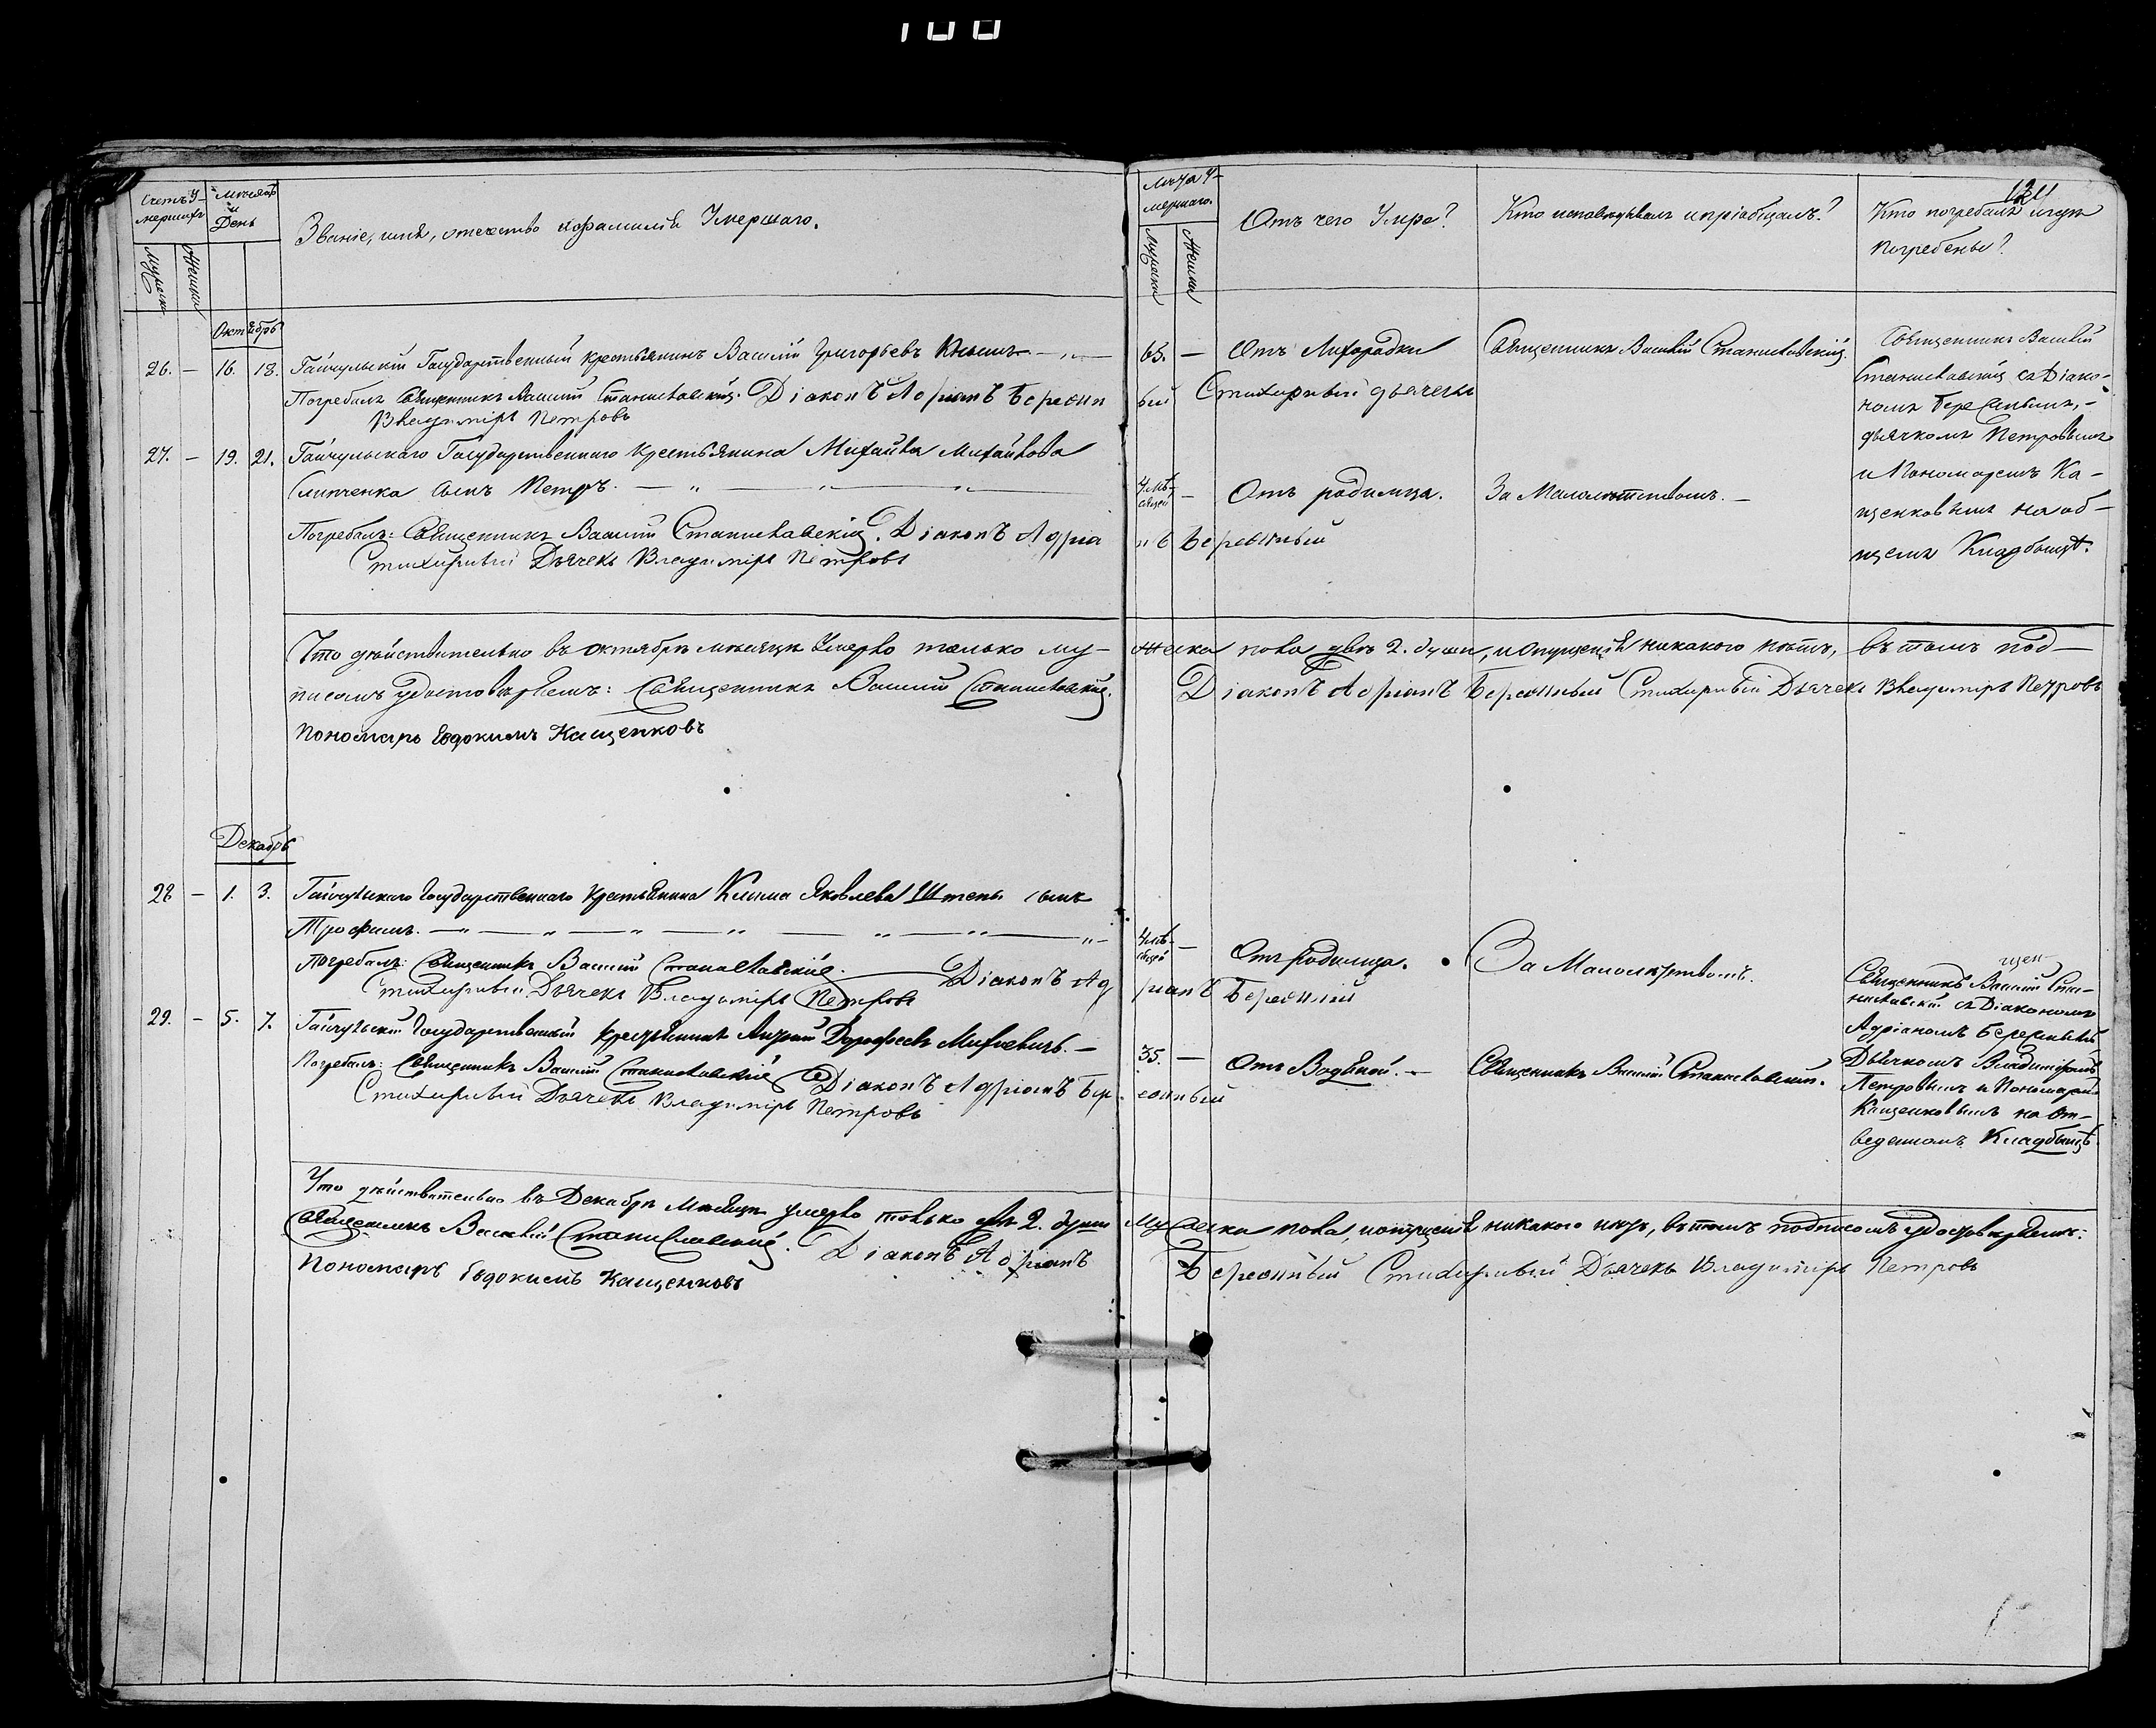 100
Счетъ У-
мершихъ
Мѣсяцъ
и
День
Званіе, имя, отечество и фамилія Умершаго.
Мужеска
Женска
Октябрь
26. — 16. 18. Гайчульскій Государственный крестьянинъ Василій Григорьевъ
Погребалъ Священникъ Василій Станиславскій. Діаконъ Адріанъ
Владиміръ Петровъ
27. — 19. 21. Гайчульскаго Государственнаго крестьянина Михайла Михайлова
Слипченка сынъ Петръ.
Погребалъ: Священникъ Василій Станиславскій. Діаконъ Адріа
Стихарный Дьячекъ Владиміръ Петровъ
Что дѣйствительно въ октябрѣ мѣсяцѣ Умерло только му-
писомъ удостовѣряемъ: Священникъ Василій Станиславскій.
Пономарь Евдокимъ Кащенковъ
Декабрь
28 — 1. 3. Гайчульскаго Государственнаго крестьянина Клима Яковлева сынъ
Трофимъ.
Погребалъ: Священникъ Василій Станиславскій. Діаконъ Ад
Стихарный Дьячекъ Владиміръ Петровъ
29. — 5. 7. Гайчульскій Государственный крестьянинъ Андрей Дорофеевъ
Погребалъ: Священникъ Василій Станиславскій Діаконъ Адріанъ Бер
Стихарный Дьячекъ Владиміръ Петровъ
Что дѣйствительно въ Декабрѣ Мѣсяцѣ умерло только двѣ 2. души
Священникъ Василій Станиславскій. Діаконъ Адріанъ
Пономарь Евдокимъ Кащенковъ
Лѣта У-
мершаго.
Отъ чего Умре?
Кто исповѣдывалъ и пріобщалъ?
Кто погребалъ и гдѣ
погребены?
Мужеска
Женска
65. — Отъ Лихорадки Священникъ Василій Станиславскій.
ный Стихарный дьячекъ
Священникъ Василій
Станиславскій съ Діако-
номъ
дьячкомъ Петровымъ
и Пономаремъ Ка-
щенковымъ на об-
щемъ Кладбищѣ.
4 мѣ-
сяцей — Отъ родимца. За Малолѣтствомъ. —
нъ
жеска пола двѣ 2. души, и опущенія никакого нѣтъ, въ томъ под-
Діаконъ Адріанъ Стихарный Дьячекъ Владиміръ Петровъ
4 мѣ-
сяцей — Отъ родимца. За Малолѣтствомъ.
ріанъ
Священникъ Василій Ста-
ниславскій съ Діакономъ
Адріаномъ
Дьячкомъ Владиміромъ
Петровымъ и Пономаремъ
Кащенковымъ на от-
веденномъ Кладбищѣ
35. — Отъ Водяной. — Священникъ Василій Станиславскій.
жеска пола, и опущенія никакого нѣтъ, въ томъ подписомъ удостовѣряемъ:
Стихарный Дьячекъ Владиміръ Петровъ